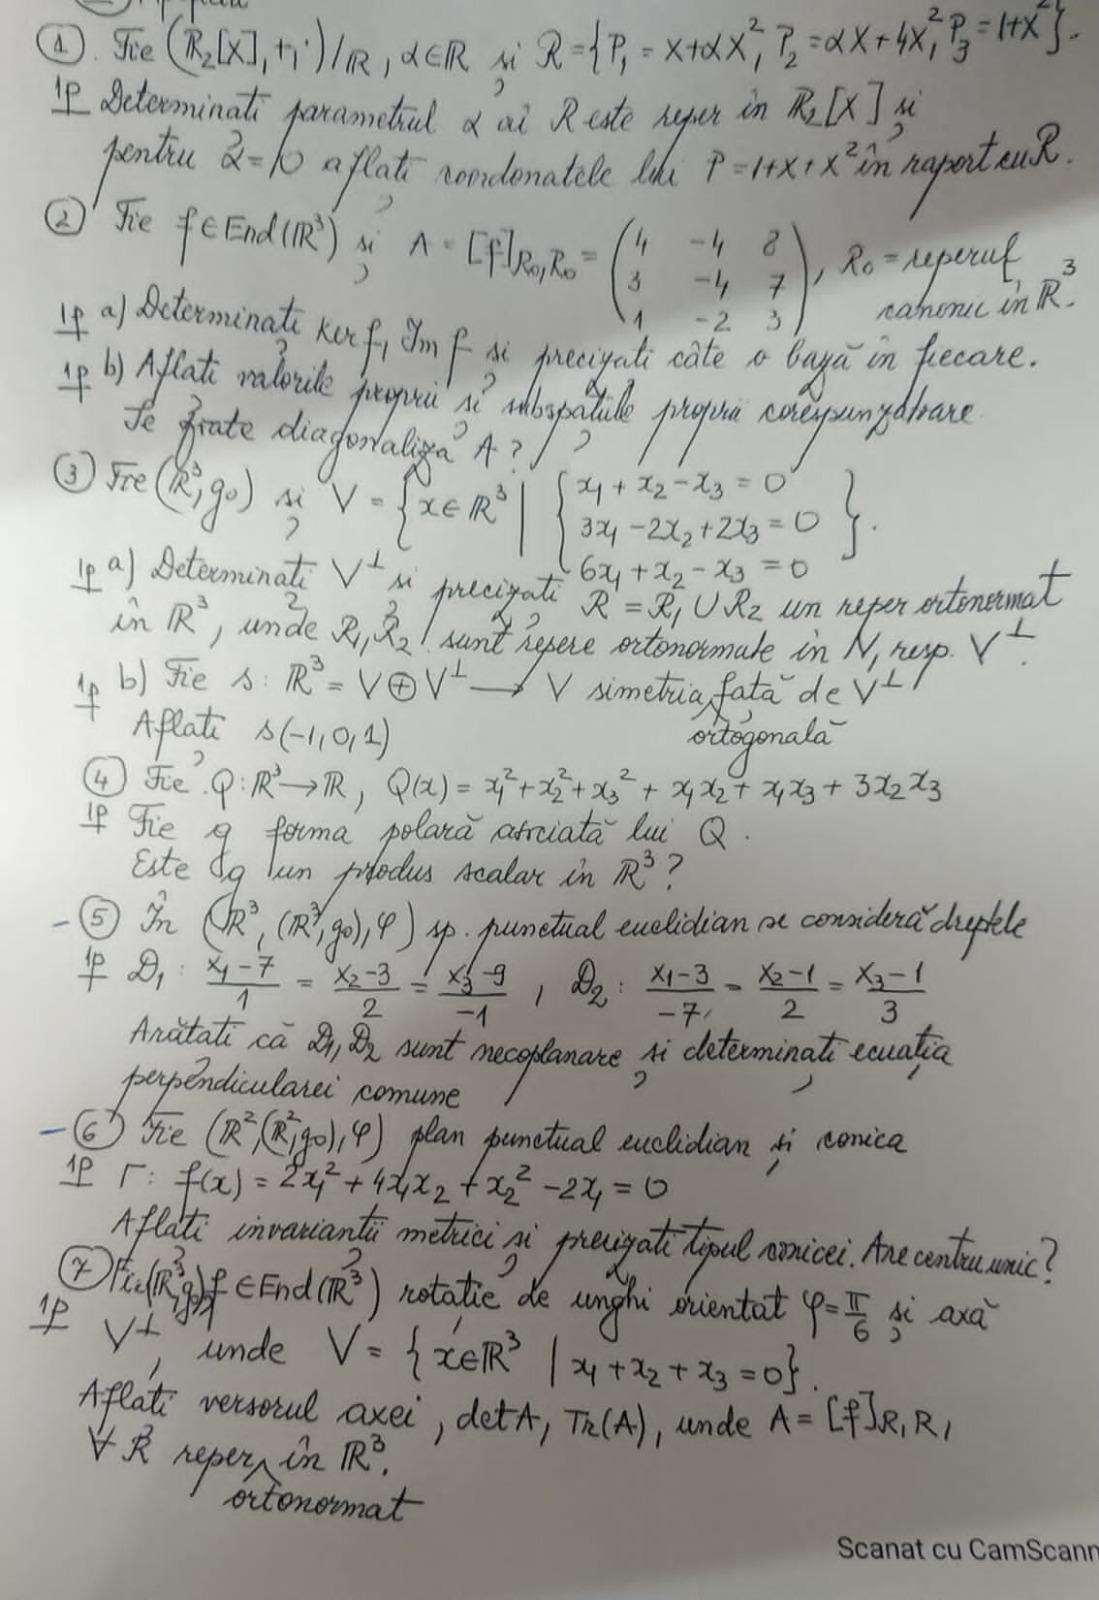 ① Fie (ℝ₂[X],+,·)/ℝ, α∈ℝ și R={P₁ = X+αX², P₂ = αX+4X², P₃ = 1+X²}.
1p Determinați parametrul α aî R este reper în ℝ₂[X] și
pentru α=10 aflați coordonatele lui P=1+X+X² în raport cu R.
② Fie f∈End(ℝ³) și A = [f]R₀,R₀ = (4 -4 8
3 -4 7
1 -2 3), R₀ = reperul
canonic în ℝ³.
1p a) Determinați ker f, Im f și precizați câte o bază în fiecare.
1p b) Aflați valorile proprii și subspațiile proprii corespunzătoare
Se poate diagonaliza A?
③ Fie (ℝ³, g₀) și V = {x∈ℝ³ | { x₁ + x₂ - x₃ = 0
3x₁ - 2x₂ + 2x₃ = 0 }.
6x₁ + x₂ - x₃ = 0
1p a) Determinați V⊥ și precizați R = R₁ ∪ R₂ un reper ortonormat
în ℝ³, unde R₁, R₂ sunt repere ortonormate în V, resp. V⊥.
1p b) Fie s: ℝ³ = V ⊕ V⊥ → V simetria ortogonală față de V⊥
Aflați s(-1,0,1)
④ Fie Q: ℝ³ → ℝ, Q(x) = x₁² + x₂² + x₃² + x₁x₂ + x₁x₃ + 3x₂x₃
1p Fie g forma polară asociată lui Q.
Este g un produs scalar în ℝ³?
- ⑤ În (ℝ³, (ℝ³, g₀), φ) sp. punctual euclidian se consideră dreptele
1p D₁: (x₁-7)/1 = (x₂-3)/2 = (x₃-9)/-1, D₂: (x₁-3)/-7 = (x₂-1)/2 = (x₃-1)/3
Arătați că D₁, D₂ sunt necoplanare și determinați ecuația
perpendicularei comune
- ⑥ Fie (ℝ², (ℝ², g₀), φ) plan punctual euclidian și conica
1p Γ: f(x) = 2x₁² + 4x₁x₂ + x₂² - 2x₁ = 0
Aflați invarianții metrici și precizați tipul conicei. Are centru unic?
⑦ Fie (ℝ³, g₀) f ∈ End(ℝ³) rotație de unghi orientat φ = π/6 și axă
1p V⊥, unde V = {x∈ℝ³ | x₁ + x₂ + x₃ = 0}.
Aflați versorul axei, det A, Tr(A), unde A = [f]R,R,
∀ R reper ortonormat în ℝ³.
Scanat cu CamScann